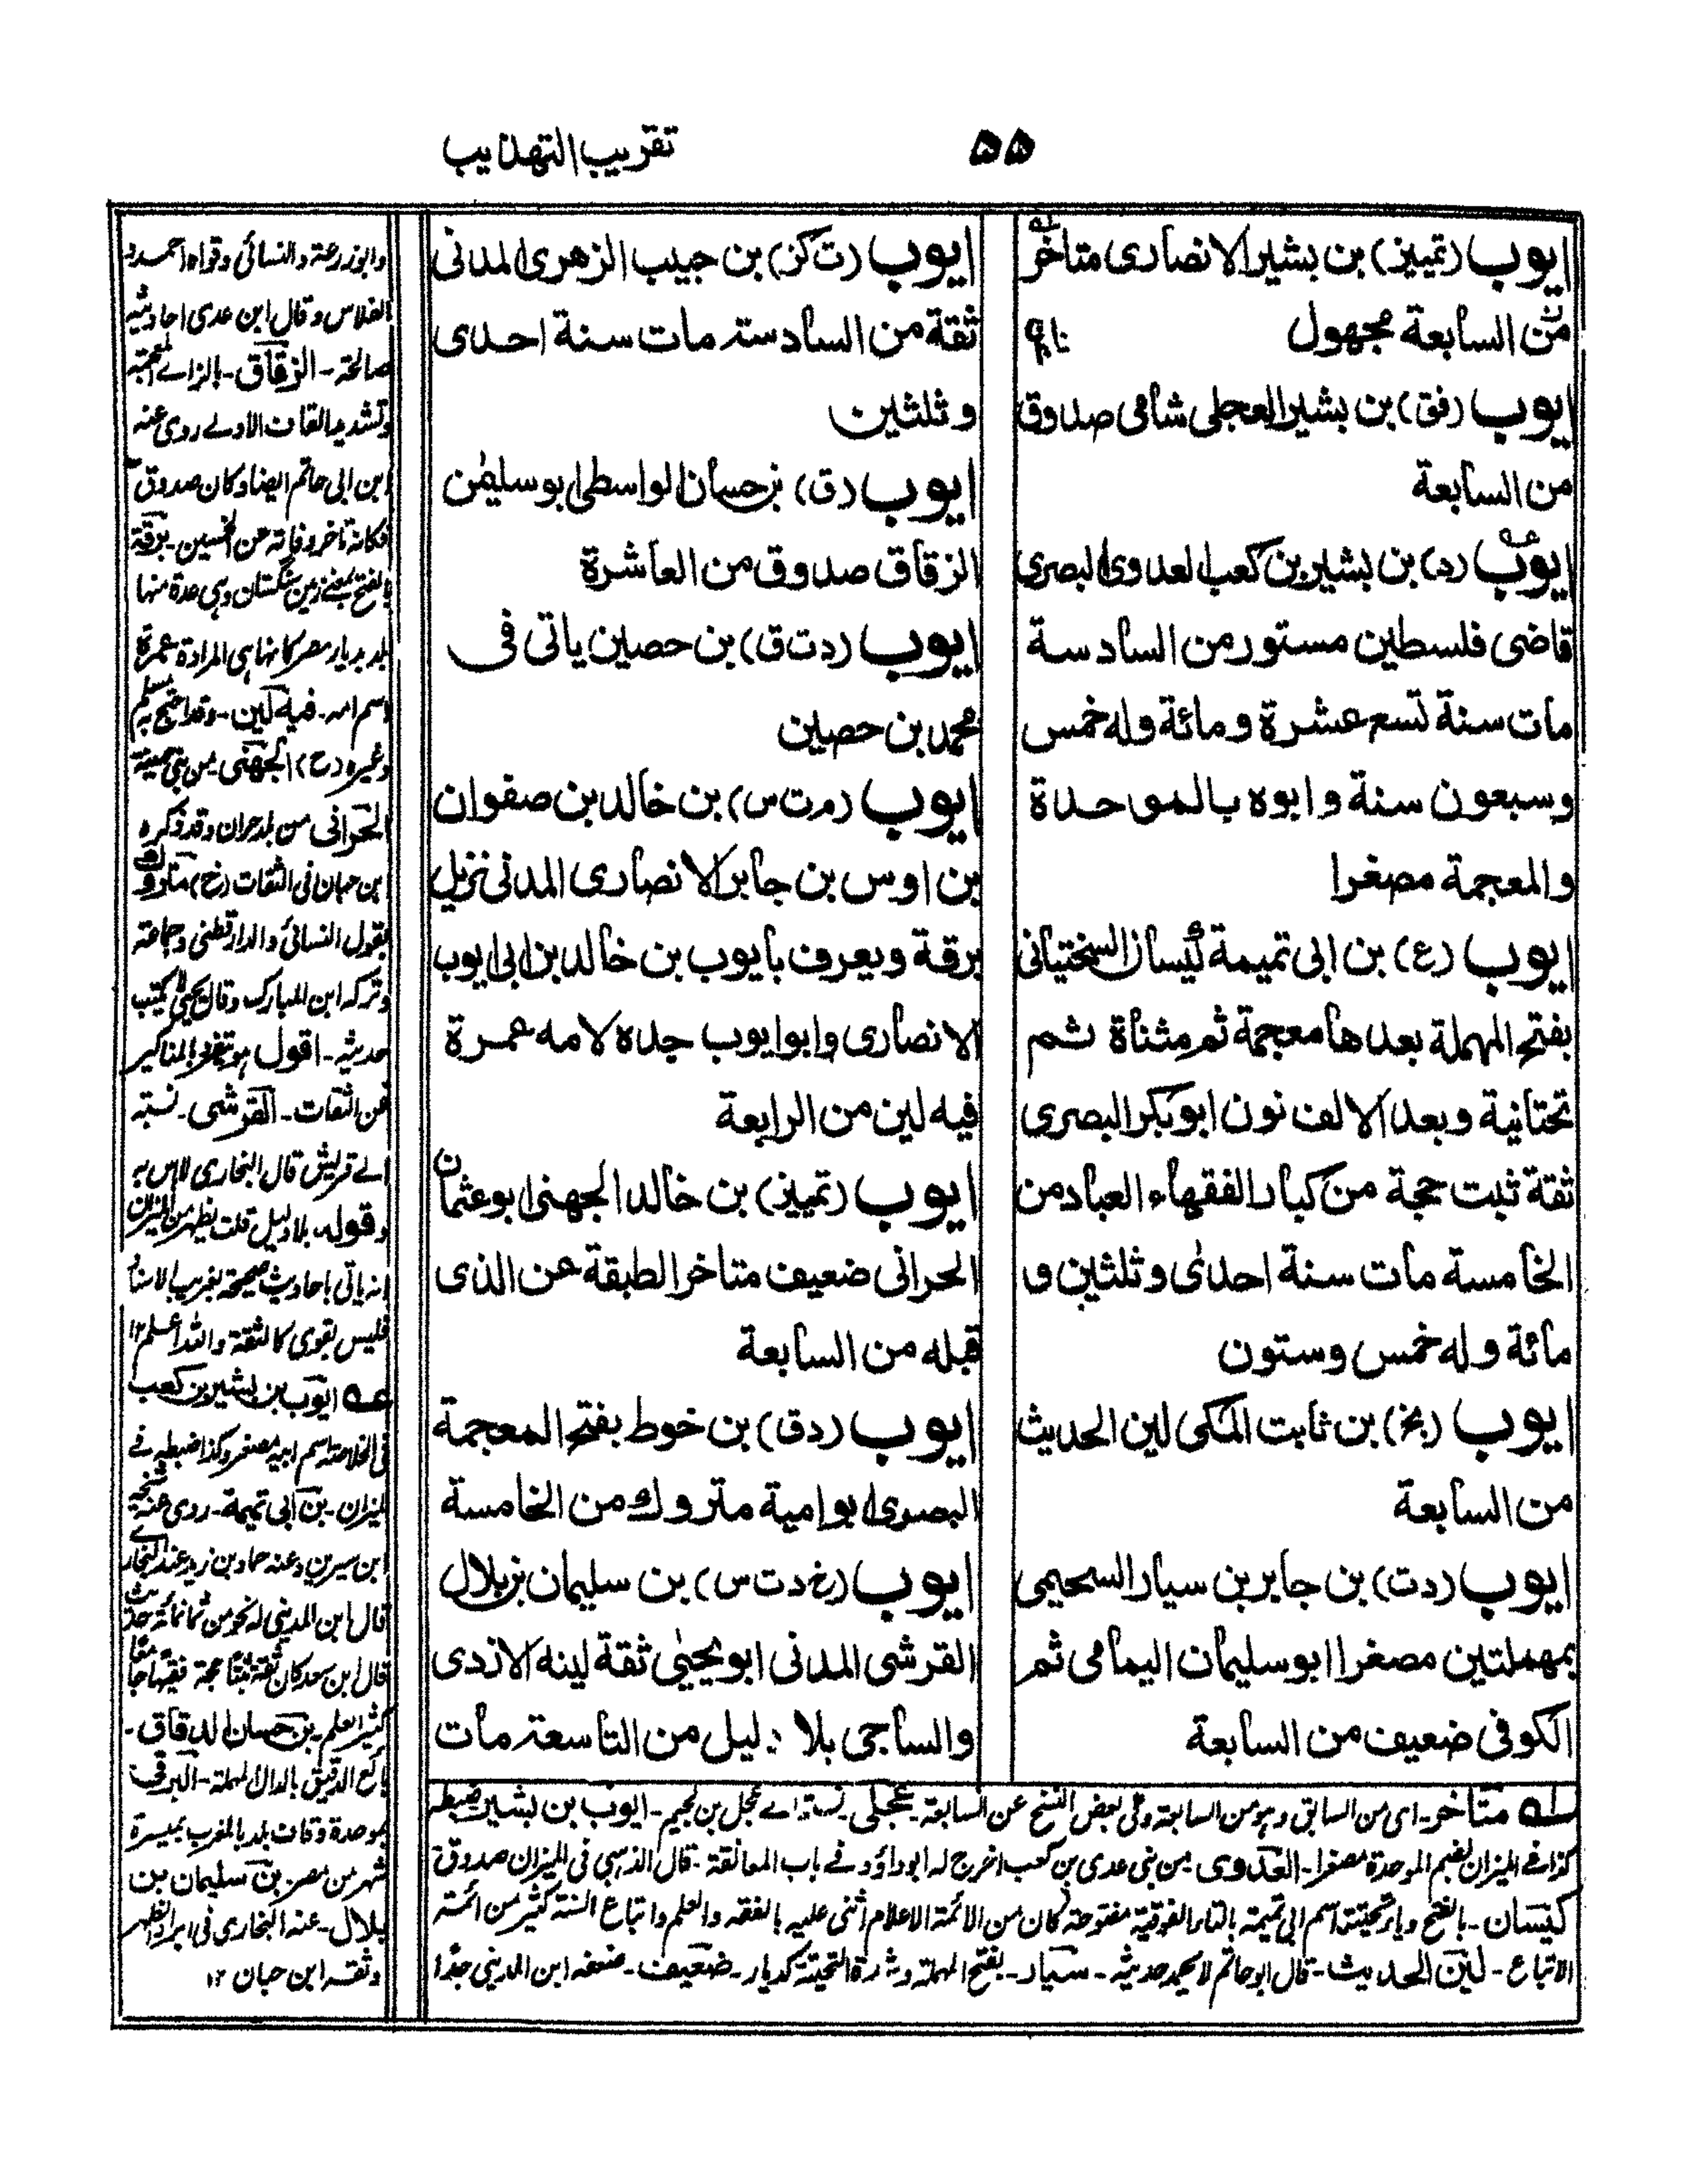 ۵۵
تقریب التهذیب
ایوب (تمییز) بن بشیر الانصاری متاخر
من السابعة مجهول
ایوب (فق) بن بشیر العجلی شامی صدوق
من السابعة
ایوب (د) بن بشیر بن کعب العدوی البصری
قاضی فلسطین مستور من السادسة
مات سنة تسع عشرة و مائة وله خمس
وسبعون سنة وابوه بالموحدة
والمعجمة مصغرا
ایوب (ع) بن ابی تمیمة کیسان السختیانی
بفتح المهملة بعدها معجمة ثم مثناة ثم
تحتانیة وبعد الالف نون ابوبکر البصری
ثقة ثبت حجة من کبار الفقهاء العباد من
الخامسة مات سنة احدی وثلثین و
مائة وله خمس وستون
ایوب (بخ) بن ثابت المکی لین الحدیث
من السابعة
ایوب (دت) بن جابر بن سیار السحیمی
بمهملتین مصغرا ابو سلیمان الیمامی ثم
الکوفی ضعیف من السابعة
ایوب (ت کن) بن حبیب الزهری المدنی
ثقة من السادسة مات سنة احدی
و ثلثین
ایوب (ق) بن حسان الواسطی ابو سلیمن
الزقاق صدوق من العاشرة
ایوب (دت ق) بن حصین یاتی فی
محمد بن حصین
ایوب (م ت س) بن خالد بن صفوان
بن اوس بن جابر الانصاری المدنی نزیل
برقة ویعرف بایوب بن خالد بن ابی ایوب
الانصاری وابو ایوب جده لامه عمرة
فیه لین من الرابعة
ایوب (تمییز) بن خالد الجهنی ابو عثمان
الحرانی ضعیف متاخر الطبقة عن الذی
قبله من السابعة
ایوب (دق) بن خوط بفتح المعجمة
البصری ابو امیة متروک من الخامسة
ایوب (خ د ت س) بن سلیمان بن بلال
القرشی المدنی ابو یحیی ثقة لینه الازدی
والساجی بلا دلیل من التاسعة مات
له متاخر۔ ای من السابق وهو من السابعة وفی بعض النسخ عن السابعة۔ عجلی۔ نسبة الی عجل بن لجیم۔ ایوب بن بشیر ضبطه
کذا فی المیزان بضم الموحدة مصغرا۔ العدوی من بنی عدی بن کعب اخرج له ابوداؤد فی باب المعانقة۔ قال الذهبی فی المیزان صدوق
کیسان۔ بالفتح ویاء تحتیة اسم ابی تمیمة بالتاء الفوقیة مفتوحة کان من الائمة الاعلام اثنی علیه بالفقه والعلم واتباع السنة کثیر من ائمة
الاتباع۔ لین الحدیث۔ قال ابوحاتم لا یحمد حدیثه۔ سیار۔ بفتح المهملة وشدة التحتیة کدیار۔ ضعیف۔ ضعفه ابن المدینی جدا
وابوزرعة والنسائی وقواه احمد و
الفلاس وقال ابن عدی احادیثه
صالحة۔ الزقاق۔ بالزاء المعجمة
وتشدید القاف الاولی روی عنه
ابن ابی حاتم ایضا وکان صدوق
فکانه تاخر وفاته عن الخمسین۔ برقة
بالفتح بمعنے زمین سنگستان وهی عدة منها
بلد بدیار مصر کانها هی المرادة عمرة
اسم امه۔ فیه لین۔ وقد احتج به مسلم
وغیره (ح) الجهنی من بنی جهینة
الحرانی من بلد حران وقد ذکره
ابن حبان فی الثقات (خ) متروک
بقول النسائی والدارقطنی وجماعة
وترکه ابن المبارک وقال یحیی لا یکتب
حدیثه۔ اقول هو یتفرد بالمناکیر
عن الثقات۔ القرشی۔ نسبة
الی قریش قال البخاری لا باس به
وقوله بلا دلیل قلت یظهر من المیزان
انه یاتی باحادیث صحیحة بغریب الاسناد
فلیس بقوی کالثقة والله اعلم ۱۲
عه ایوب بن بشیر بن کعب
فی الخلاصة اسم ابیه مصغر وکذا ضبطه فی
المیزان۔ بن ابی تمیمة۔ روی عنه شیخه
ابن سیرین وعنه حماد بن زید عند البخاری
قال ابن المدینی له نحو من ثمانمائة حدیث
قال ابن سعد کان ثقة ثبتا حجة فقیها جامعا
کثیر العلم۔ بن حسان الدقاق۔
بائع الدقیق بالدال المهملة۔ البرقی
بموحدة وقاف بلد بالمغرب بمسیرة
شهر من مصر بن سلیمان بن
بلال۔ عنه البخاری فی ابراد الظهر
وثقه ابن حبان ۱۲